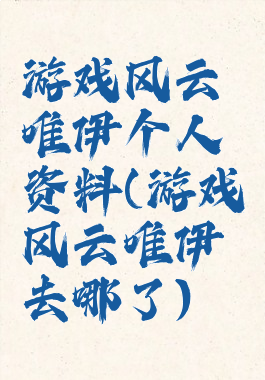 游戏风云
唯伊个人
资料(游戏
风云唯伊
去哪了)